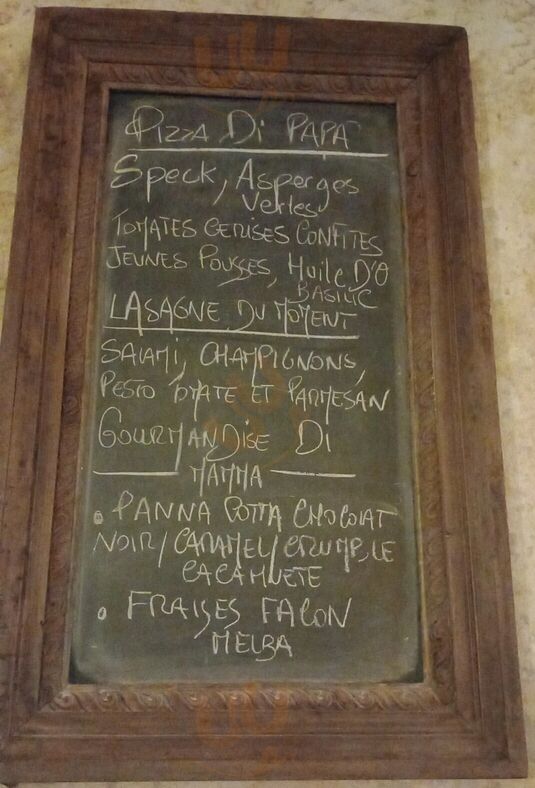 PIZZA Di PAPA
Speck, Asperges
Vertes
TOMATES CERISES CONFITES
JEUNES POUSSES, Huile D'O
BASILIC
LASAGNE DU MOMENT
SALAMI, CHAMPIGNONS,
PESTO TOMATE ET PARMESAN
GOURMANDISE Di
MAMMA
• PANNA COTTA CHOCOLAT
NOIR / CARAMEL / CRUMBLE
CACAHUETE
• FRAISES FACON
MELBA